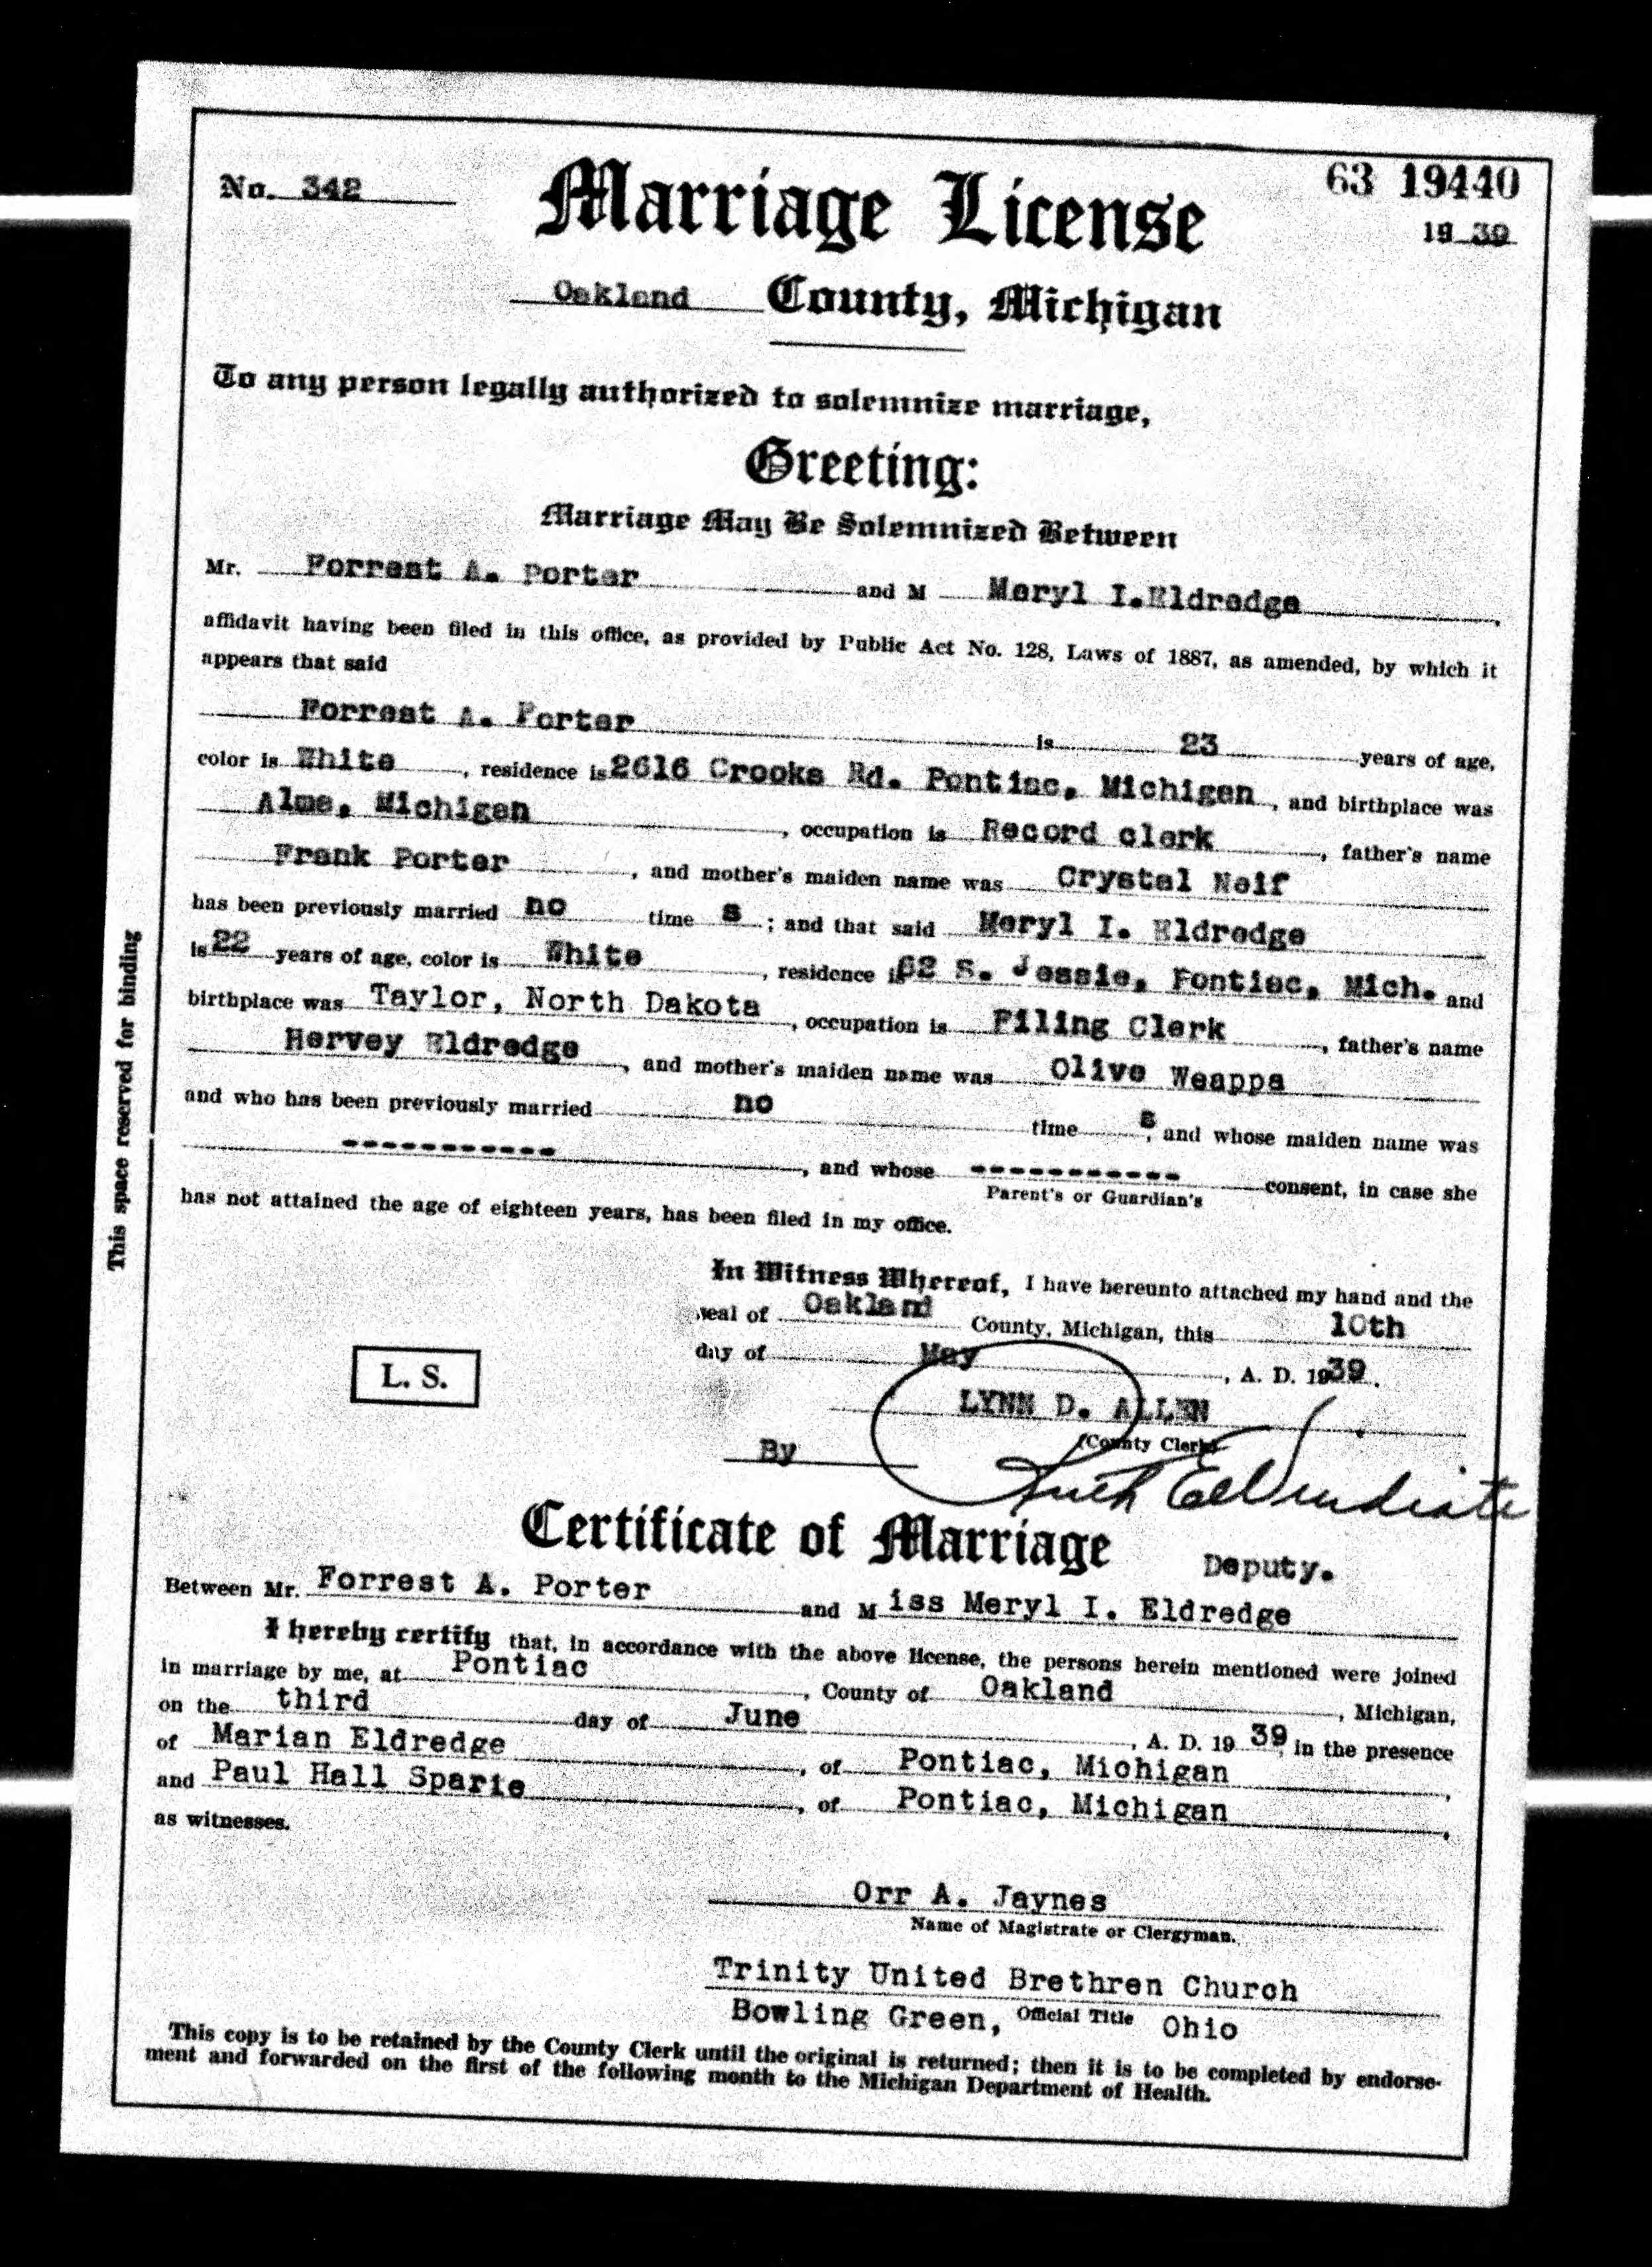 No. 342
63 19440
Marriage License
19 39
Oakland County, Michigan
To any person legally authorized to solemnize marriage,
Greeting:
Marriage May Be Solemnized Between
Mr. Forrest A. Porter and M Meryl I. Eldredge,
affidavit having been filed in this office, as provided by Public Act No. 128, Laws of 1887, as amended, by which it
appears that said
Forrest A. Porter is 23 years of age,
color is White, residence is 2616 Crooks Rd. Pontiac, Michigan, and birthplace was
Alma, Michigan, occupation is Record clerk, father's name
Frank Porter, and mother's maiden name was Crystal Neif
has been previously married no time s; and that said Meryl I. Eldredge
is 22 years of age, color is White, residence is 62 S. Jessie, Pontiac, Mich. and
birthplace was Taylor, North Dakota, occupation is Filing Clerk, father's name
Harvey Eldredge, and mother's maiden name was Olive Weappa
and who has been previously married no time s, and whose maiden name was
-----------, and whose ----------- consent, in case she
Parent's or Guardian's
has not attained the age of eighteen years, has been filed in my office.
In Witness Whereof, I have hereunto attached my hand and the
seal of Oakland County, Michigan, this 10th
day of May, A. D. 1939.
L. S.
LYNN D. ALLEN
(County Clerk)
By Ruth
Certificate of Marriage
Deputy.
Between Mr. Forrest A. Porter and Miss Meryl I. Eldredge
I hereby certify that, in accordance with the above license, the persons herein mentioned were joined
in marriage by me, at Pontiac, County of Oakland, Michigan,
on the third day of June, A. D. 19 39, in the presence
of Marian Eldredge, of Pontiac, Michigan,
and Paul Hall Sparie, of Pontiac, Michigan,
as witnesses.
Orr A. Jaynes
Name of Magistrate or Clergyman.
Trinity United Brethren Church
Bowling Green, Official Title Ohio
This copy is to be retained by the County Clerk until the original is returned; then it is to be completed by endorse-
ment and forwarded on the first of the following month to the Michigan Department of Health.
This space reserved for binding